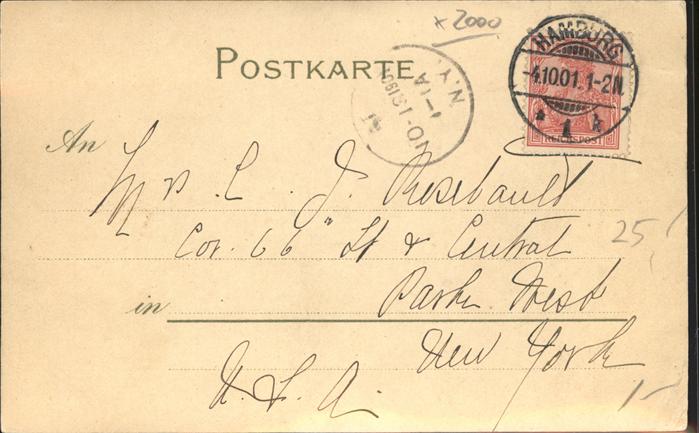 x 2000
POSTKARTE
HAMBURG
-4.10.01.1-2N.
* 1 k
REICHSPOST
N.Y.
1-1A
An
Mrs L. J. Rosebault
Cor. 66" St & Central
25,
in
Park West
New York
U. S. A.
1-